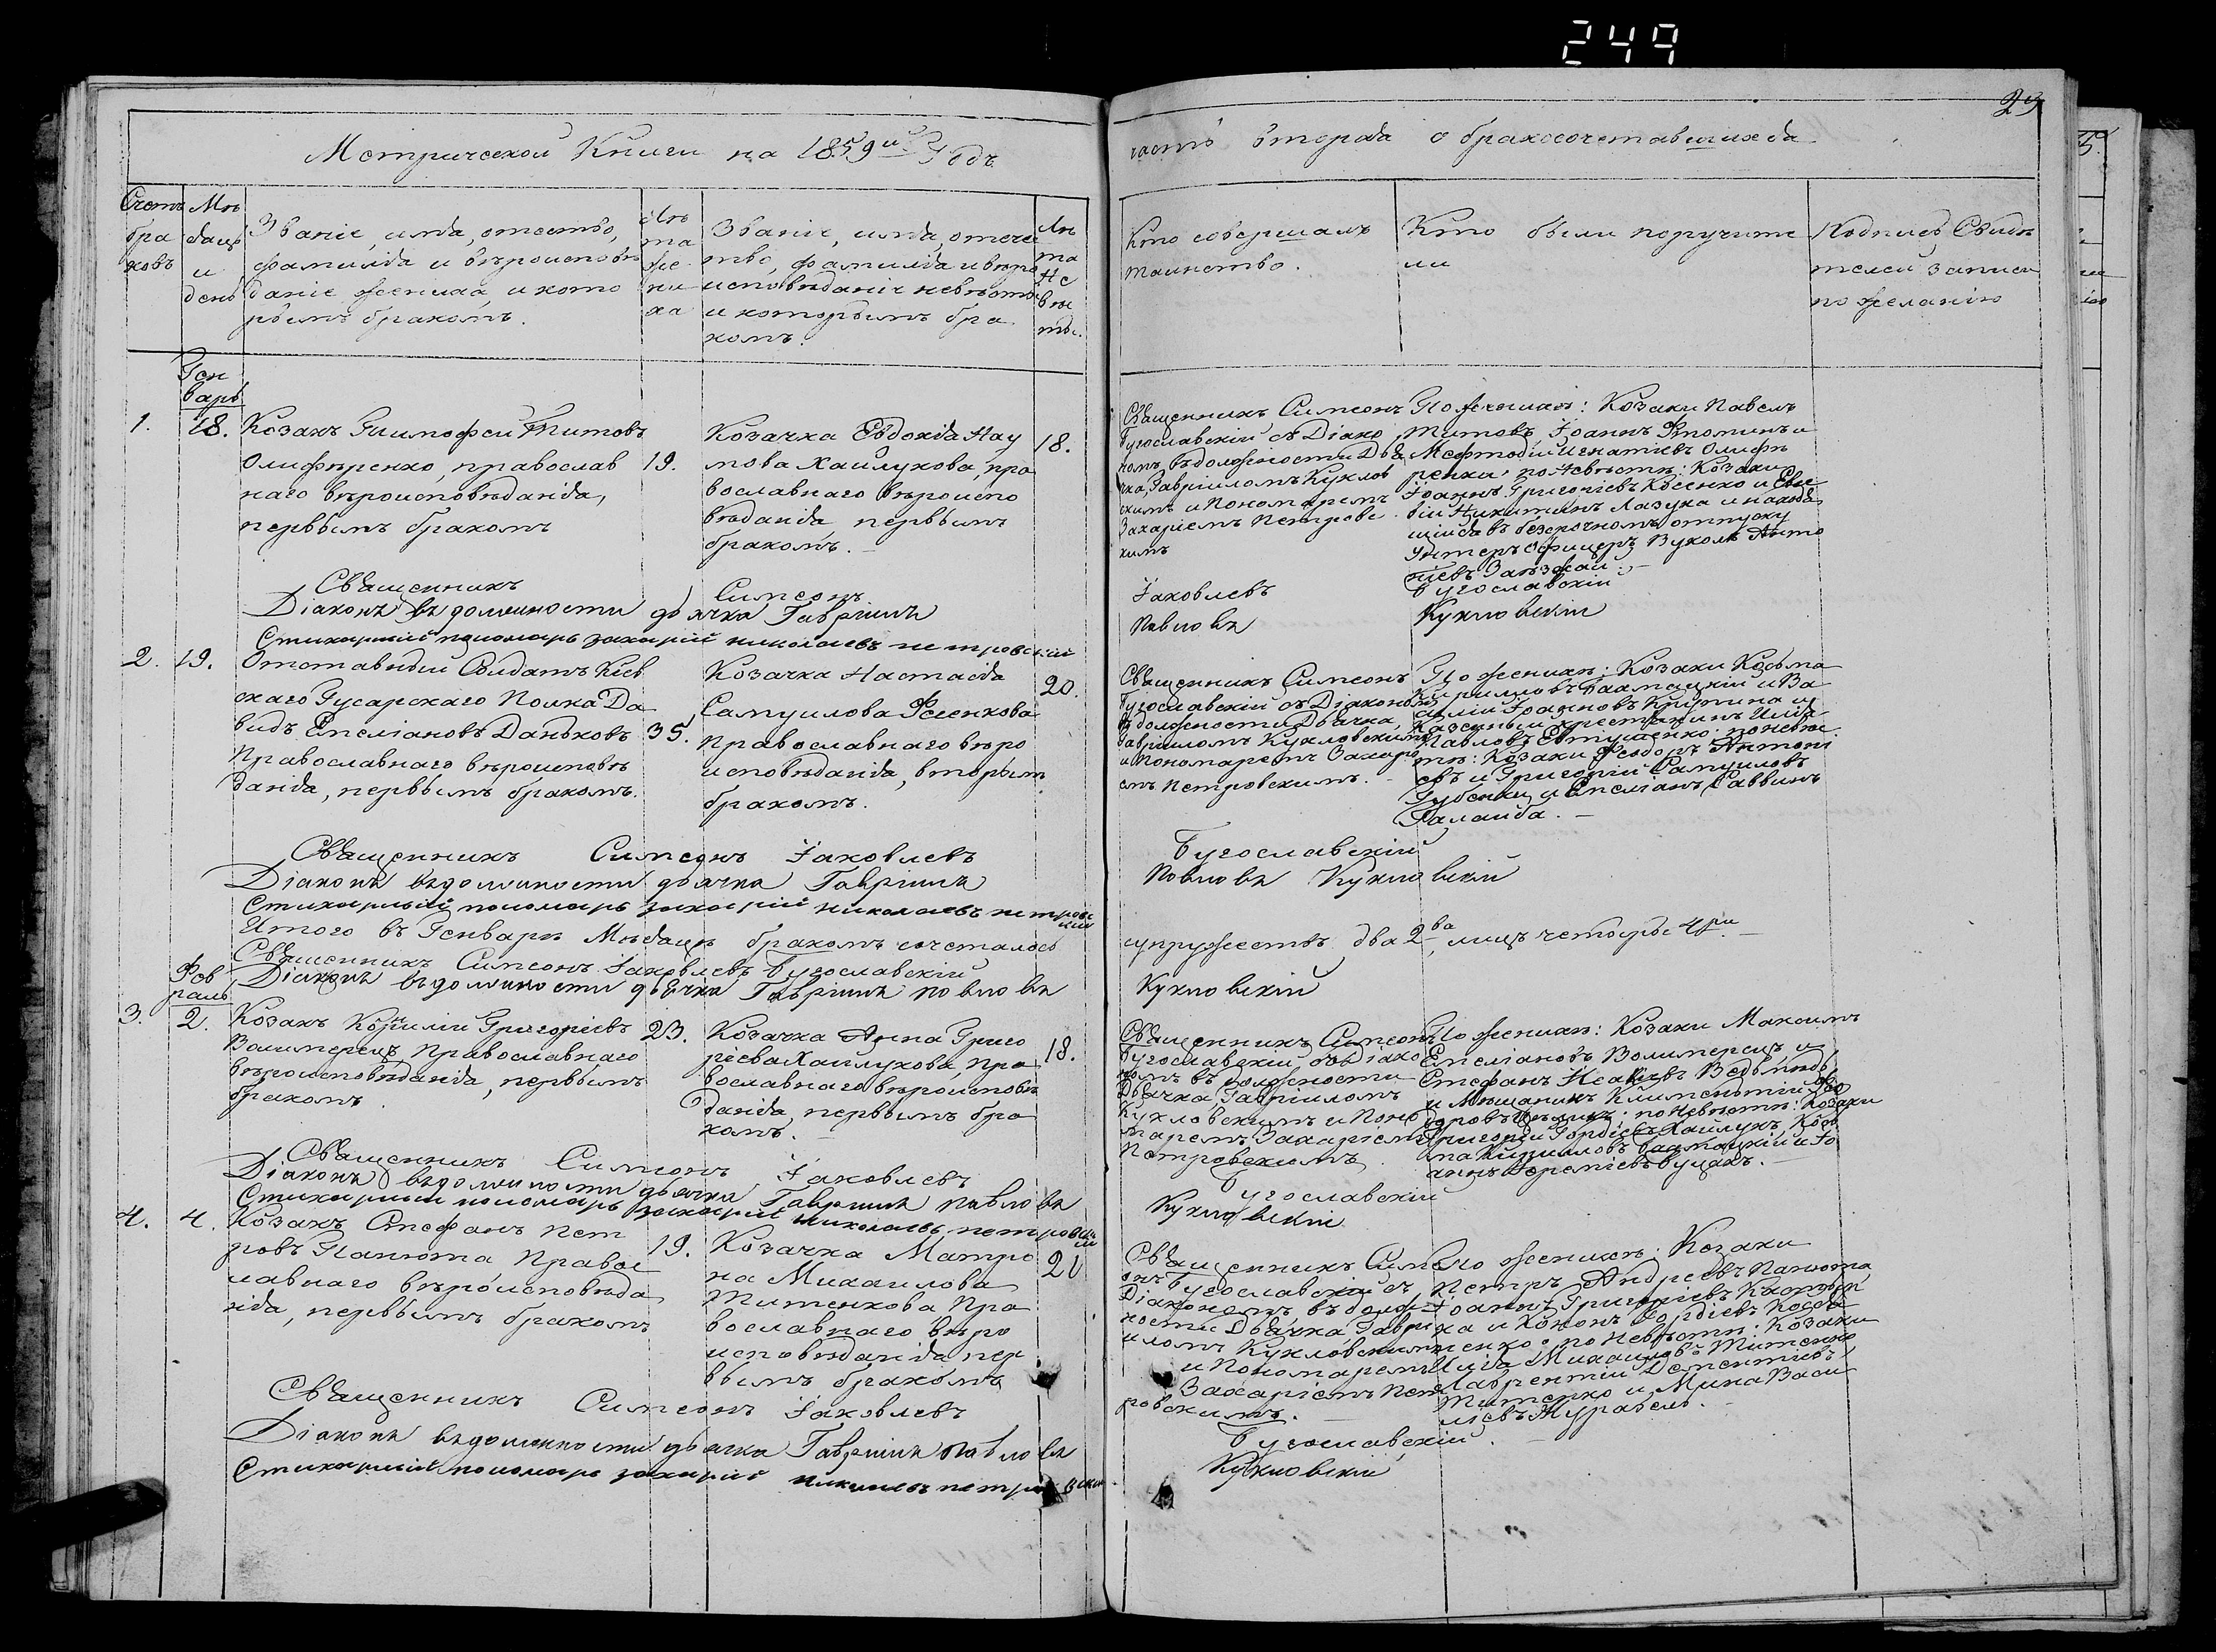 249
29
Метрической Книги на 1859й Годъ
часть вторая о бракосочетавшихся
Счетъ браковъ
Мѣсяцъ и день
Званіе, имя, отчество,
фамилія и вѣроисповѣ
даніе жениха, и кото
рымъ бракомъ.
Лѣ
та
же
ни
ха
Званіе, имя, отече
ство, фамилія и вѣро
исповѣданіе невѣсты
и которымъ бра
комъ.
Лѣ
та
не
вѣс
ты.
Кто совершалъ
таинство.
Кто были поручите
ли
Подпись Свидѣ
телей записи
по желанію
Ген
варь
1.
18.
Козакъ Тимофей Титовъ
Олиференко, православ
наго вѣроисповѣданія,
первымъ бракомъ
19.
Козачка Евдокія Нау
мова Хайлукова, пра
вославнаго вѣроиспо
вѣданія первымъ
бракомъ.
18.
Священникъ Симеонъ
Бугославскій съ Діако
номъ въ должности Дья
чка, Гавріиломъ Куклов
скимъ и Пономаремъ
Захаріемъ Петровс
кимъ
По женихѣ: Козаки Павелъ
Титовъ, Іоаннъ Фоминъ и
Мефтодій Игнатіевъ Олифе
ренки; по Невѣстѣ: Козаки
Іоаннъ Григоріевъ Косенко и Евсе
вій Никитинъ Лазука и находя
щійся въ безсрочномъ отпуску
Унтеръ офицеръ Вуколъ Анто
ніевъ
Священникъ Симеонъ Іаковлевъ Бугославскій
Діаконъ въ должности дьячка Гавріилъ Павловъ Кукловскій
Стихарный пономарь захарій николаевъ петровскій
2.
19.
Отставный Солдатъ Кіев
скаго Гусарскаго Полка Да
видъ Емеліановъ Даньковъ
Православнаго вѣроисповѣ
данія, первымъ бракомъ.
35.
Козачка Настасія
Самуилова Фесенкова
Православнаго вѣро
исповѣданія, вторым
бракомъ.
20.
Священникъ Симеонъ
Бугославскій съ Діакономъ
въ должности Дьячка
Гавріиломъ Кукловскимъ
и Пономаремъ Захарі
емъ Петровскимъ.
По женихѣ: Козаки Косьма
Кирилловъ Баатацкій и Ва
силій Іоанновъ и
Казенный крестьянинъ Илія
Павловъ Евтушенко; по невѣс
тѣ: Козаки Феодоръ Антоні
евъ и Григорій Самуиловъ
Губенки, и Емеліанъ Саввинъ
Галайба.
Священникъ Симеонъ Іаковлевъ Бугославскій
Діаконъ въ должности дьячка Гавріилъ Павловъ Кукловскій
Стихарный пономарь захарій николаевъ петровскій
Итого въ Генварѣ Мѣсяцѣ бракомъ сочеталось супружествъ два 2ва, лицъ четыре 4ри
Священникъ Симеонъ Іаковлевъ Бугославскій
Діаконъ въ должности дьячка Гавріилъ Павловъ Кукловскій
Фев
раль
3.
2.
Козакъ Корнилій Григоріевъ
Волимерецъ, Православнаго
вѣроисповѣданія, первымъ
бракомъ.
23.
Козачка Анна Григо
ріева Хайлукова, Пра
вославнаго вѣроисповѣ
данія, первымъ бра
комъ.
18.
Священникъ Симеонъ
Бугославскій съ Діако
номъ въ должности
Дьячка, Гавріиломъ
Кукловскимъ и Поно
маремъ Захаріемъ
Петровскимъ.
По женихѣ: Козаки Максимъ
Емеліановъ Волимерецъ, и
Стефанъ Исакіевъ
и Мѣщанинъ Климентій Фео
доровъ; по Невѣстѣ: Козаки
Григорій Гордіевъ Хайлукъ, Кось
ма Кирилловъ Баатацкій и Іо
аннъ Іереміевъ Буцахъ.
Священникъ Симеонъ Іаковлевъ Бугославскій
Діаконъ въ должности дьячка Гавріилъ Павловъ Кукловскій
Стихарный пономарь захарій николаевъ петровскій
4.
4.
Козакъ Стефанъ Пет
ровъ Панюта Правос
лавнаго вѣроисповѣда
нія, первымъ бракомъ
19.
Козачка Матро
на Михаилова
Титенкова Пра
вославнаго вѣро
исповѣданія пер
вымъ бракомъ
Священникъ Симе
онъ Бугославскій съ
Діакономъ въ долж
ности Дьячка Гаврі
иломъ Кукловскимъ
и Пономаремъ
Захаріемъ Пет
ровскимъ.
По женихѣ: Козаки
Петръ Андреевъ Панюта
Іоаннъ Григоріевъ
и Кононъ Гордіевъ
по Невѣстѣ: Козаки
Илія Михаиловъ Титенко
Лаврентій Дементіевъ
Титенко и Мина Васи
ліевъ Журавель.
Священникъ Симеонъ Іаковлевъ Бугославскій
Діаконъ въ должности дьячка Гавріилъ Павловъ Кукловскій
Стихарный пономарь захарій николаевъ петровскій